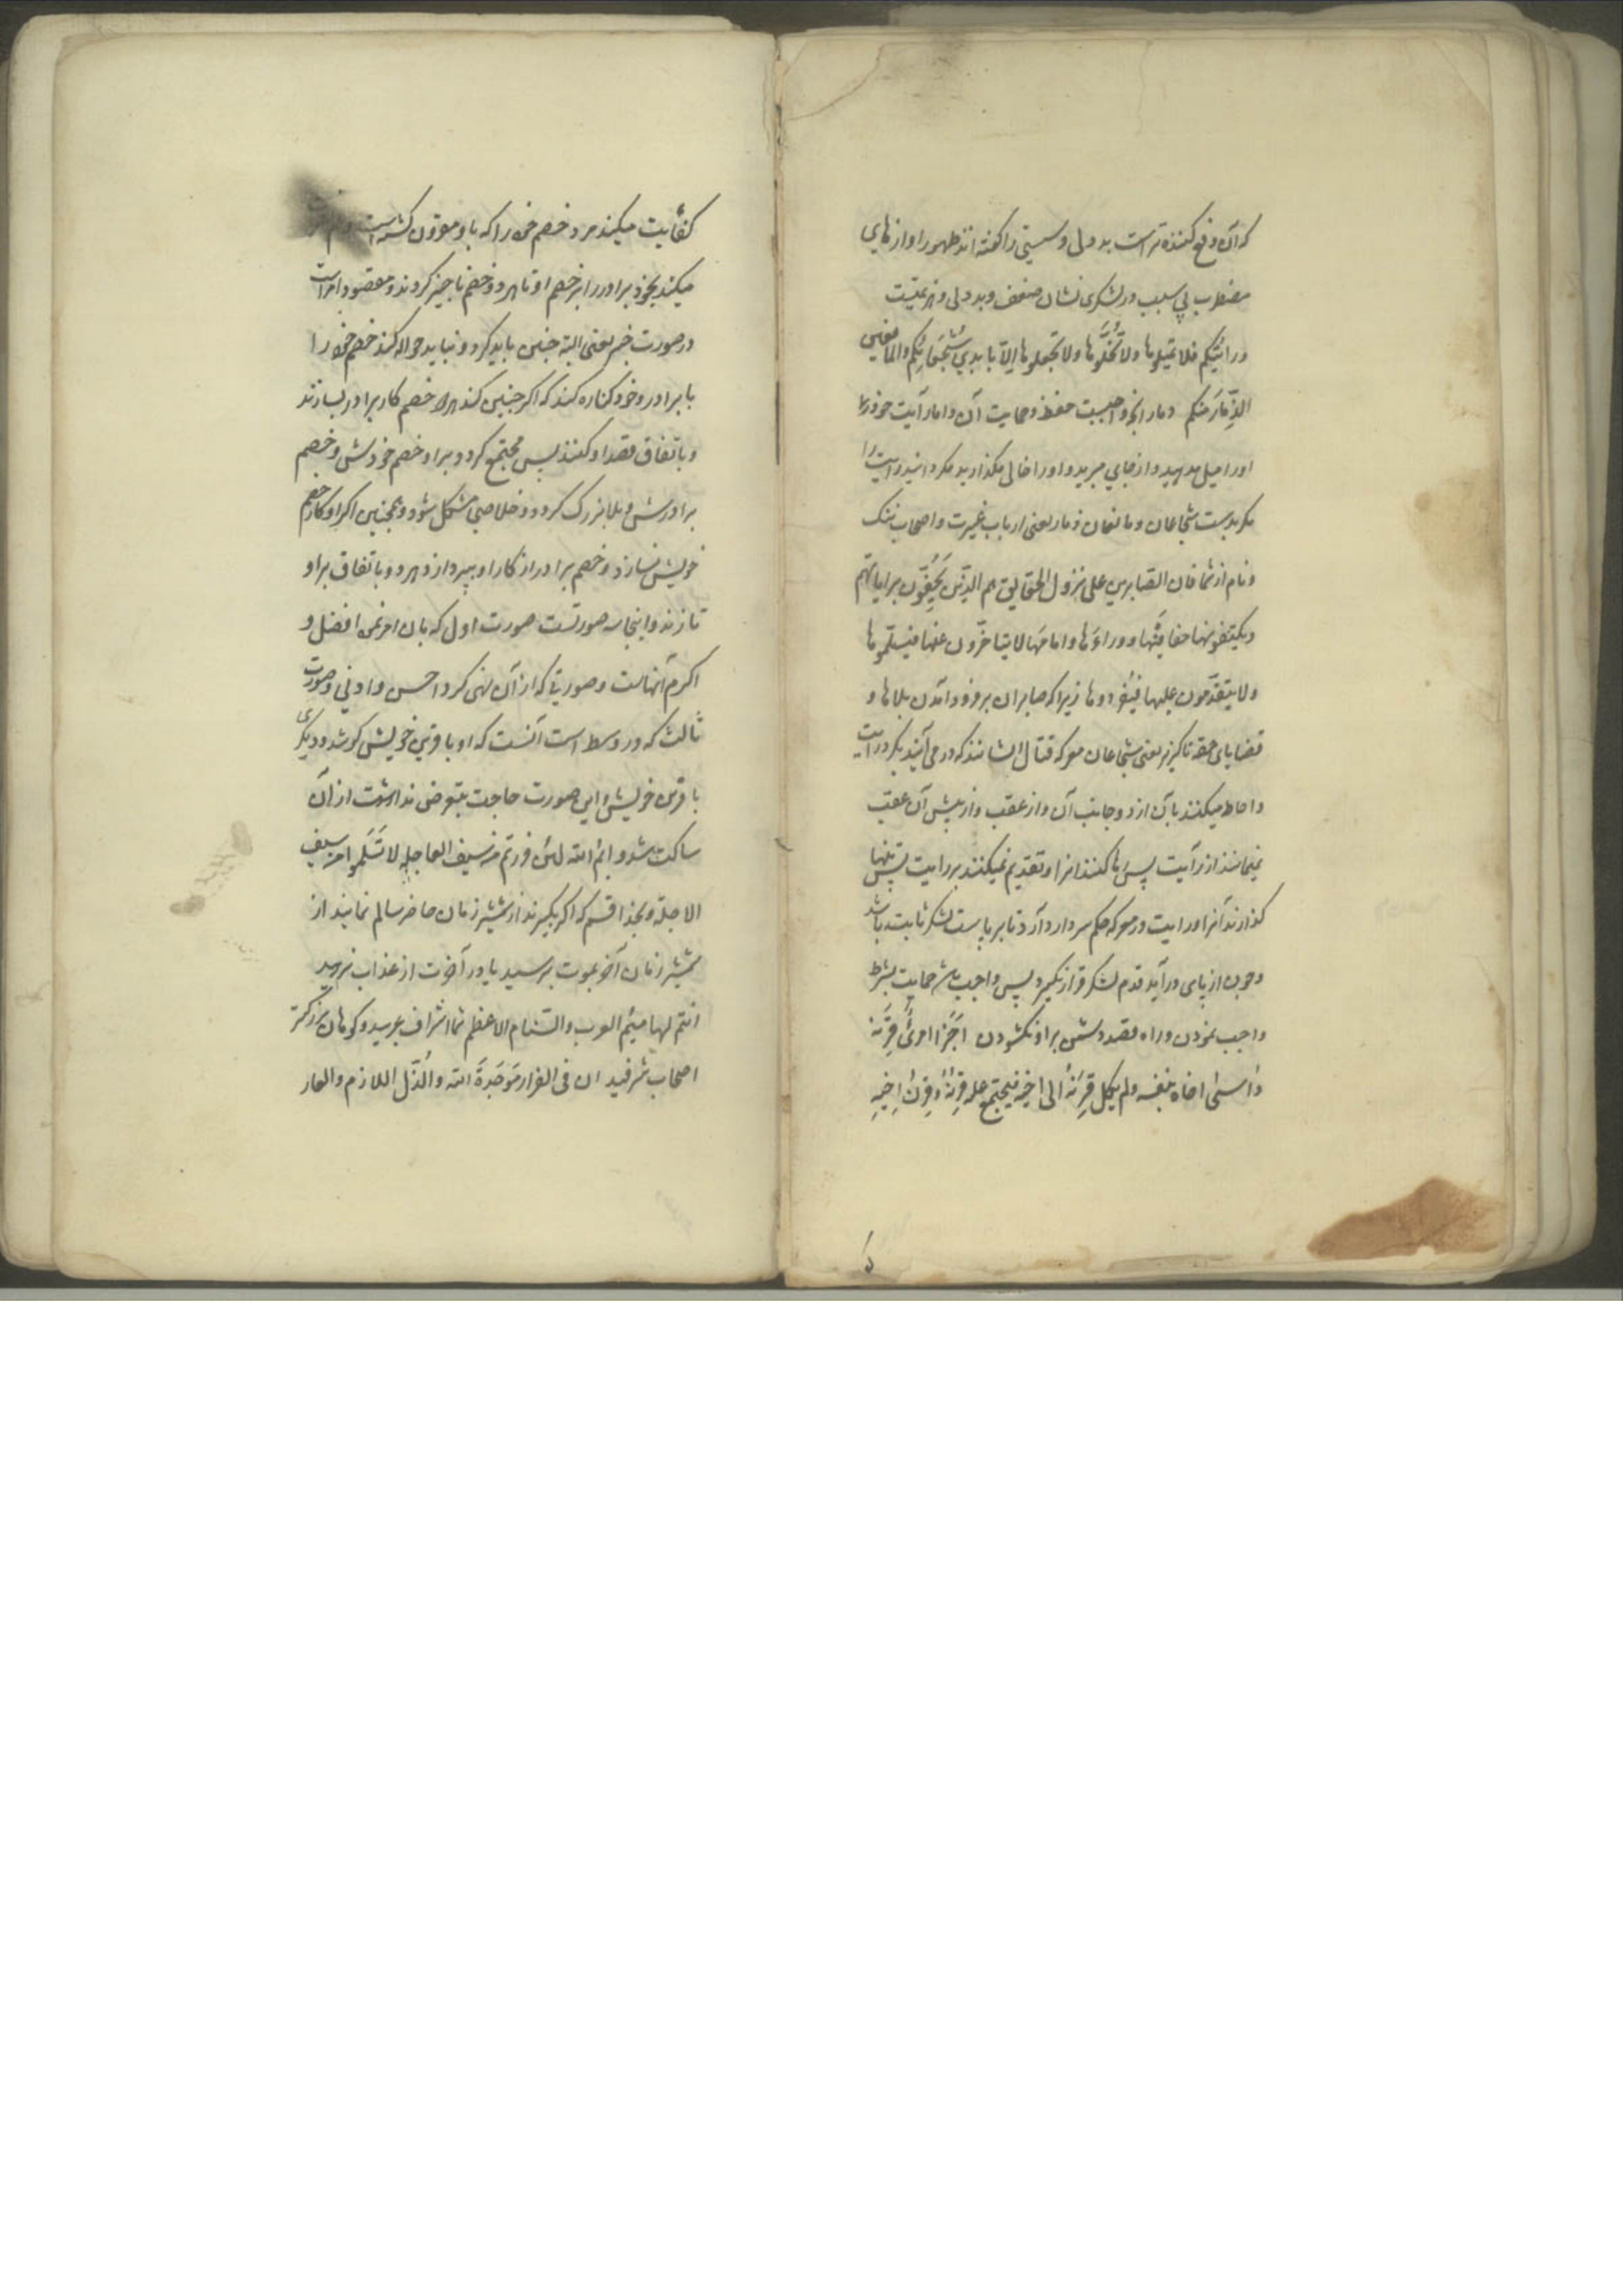 که آن دفع کننده تر است بد دلی و سستی را گفته اند ظهور اوازهای
مضطرب بی سبب در لشکری نشان ضعف و بد دلی و هزیمتیست
و رایتکم فلا تمیلوها ولا تخلّوها ولا تجعلوها الّا بایدی شُجعانِکم والمانعین
الذِّمارَ منکم و مار انچه واجبست حفظ و حمایت آن و اما رایت خود را
او را میل مدهید و از جای مبرید و او را خالی مگذارید و مگردانید رایت را
مگر بدست شجاعان و مانعان ذمار یعنی ارباب غیرت و اصحاب ننگ
و نام از شما فان الصابرین علی نزول الحقایق هم الذین یَحُفّون برایاتهم
و یکتنفونها حفافَیْها و وراءَها و امامَها لا یتأخّرون عنها فیسلموها
ولا یتقدّمون علیها فیُفردوها زیرا که صابران بر فرود آمدن بلاها و
قضایای حقه ناگزیر یعنی شجاعان معرکه قتال ایشانند که در می آیند بگرد رایت
و احاطه میکنند بآن از دو جانب آن و از عقب و از پیش آن عقب
نمیمانند از رایت پس رها کنند انرا و تقدیم نمیکنند بر رایت پس تنها
گذارند آنرا و رایت در معرکه حکم سردار دارد تا بر پاست لشکر ثابت باشد
و چون از پای در آید قدم لشکر قرار نگیرد پس واجب باشد حمایت بشرط
واجب نمودن و راه قصد دشمن بر او نگشودن اَجزَأ امرئٌ قِرنَه
و آسیٰ اخاه بنفسه ولم یکِل قِرنَهُ الی اخیه فیجتمع علیه قِرنُهُ و قِرنُ اخیهِ
کفایت میکند مرد خصم خود را که با او مقرون گشته است
میکند بخود برادر را بر خصم او تا هر دو خصم ناچیز گردند و مقصود امر است
در صورت خبر یعنی البته چنین باید کرد و نباید حواله کند خصم خود را
با برادر و خود کناره کند که اگر چنین کند هرد خصم کار برادر بسازند
و باتفاق قصد او کنند پس مجتمع گردد بر او خصم خودش و خصم
برادرش و بلا بزرگ گردد و خلاصی مشکل شود و همچنین اگر او کار خصم
خویش نسازد و خصم برادر از کار او بپردازد هر دو باتفاق بر او
تازند و اینجا سه صورتست صورت اول که بان امر نمود افضل و
اکرم آنهاست و صورتی که از آن نهی کرد اخس و ادنی و صورت
ثالث که در وسط است آنست که او با قرین خویش کوشد و دیگری
با قرین خویش و این صورت حاجت بتعرض نداشت از آن
ساکت شد و ایمُ الله لئن فررتم من سیف العاجلة لا تَسْلَموا من سیف
الاجلة و بخدا قسم که اگر بگریزند از شمشیر زمان حاضر سالم نمانید از
شمشیر زمان آخر بموت برسید یا در آخرت از عذاب نرهید
انتم لهامیم العرب و السنام الاعظم شما اشراف عربید و کوهان بزرگتر
اصحاب شرفید ان فی الفرار مَوجَدةَ الله و الذلّ اللازم و العار